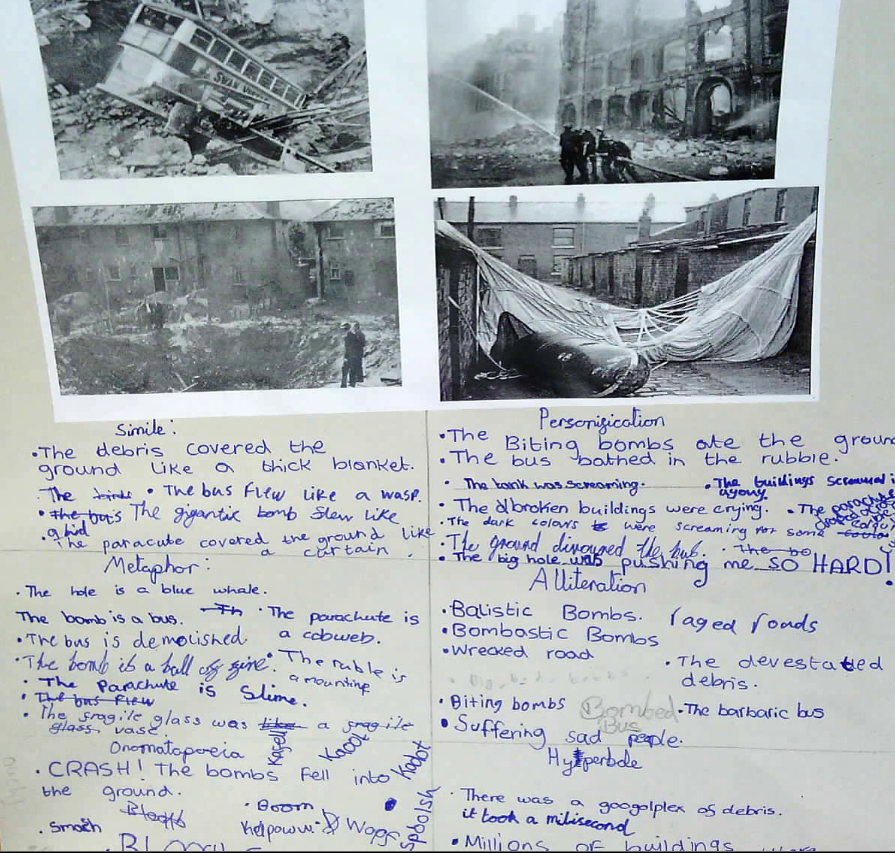 SWAN
Simile:
•The debris covered the
ground like a thick blanket.
The
• The bus flew like a wasp.
• The bus The gigantic bomb flew like
a bird
The paracute covered the ground like
a curtain
Metaphor:
• The hole is a blue whale.
The bomb is a bus. Th
• The parachute is
a cobweb.
• The bus is demolished.
• The bomb is a ball of fire.
• The ruble is
a mounting
• The Parachute is Slime.
• The bus flew
• The fragile glass was like a fragile
glass vase.
Onomatopoeia
• CRASH! The bombs fell into
the ground.
• Boom
• Smosh
Kelpoww
Spoolsh
Personification
•The Biting bombs ate the ground
•The bus bathed in the rubble.
• The bank was screaming.
• The buildings screamed in
agony.
• The broken buildings were crying.
• The parachute
• The dark colours were screaming for some
• The ground divoured the bus.
• The bo
• The big hole was pushing me SO HARD!
Alliteration
•Balistic Bombs.
raged roads
•Bombastic Bombs
•Wrecked road
• The devestated
debris.
• Biting bombs
Bombed
Bus
•The barbaric bus
• Suffering sad people.
Hyperbole
• There was a googolplex of debris.
it took a milisecond
• Millions of buildings were